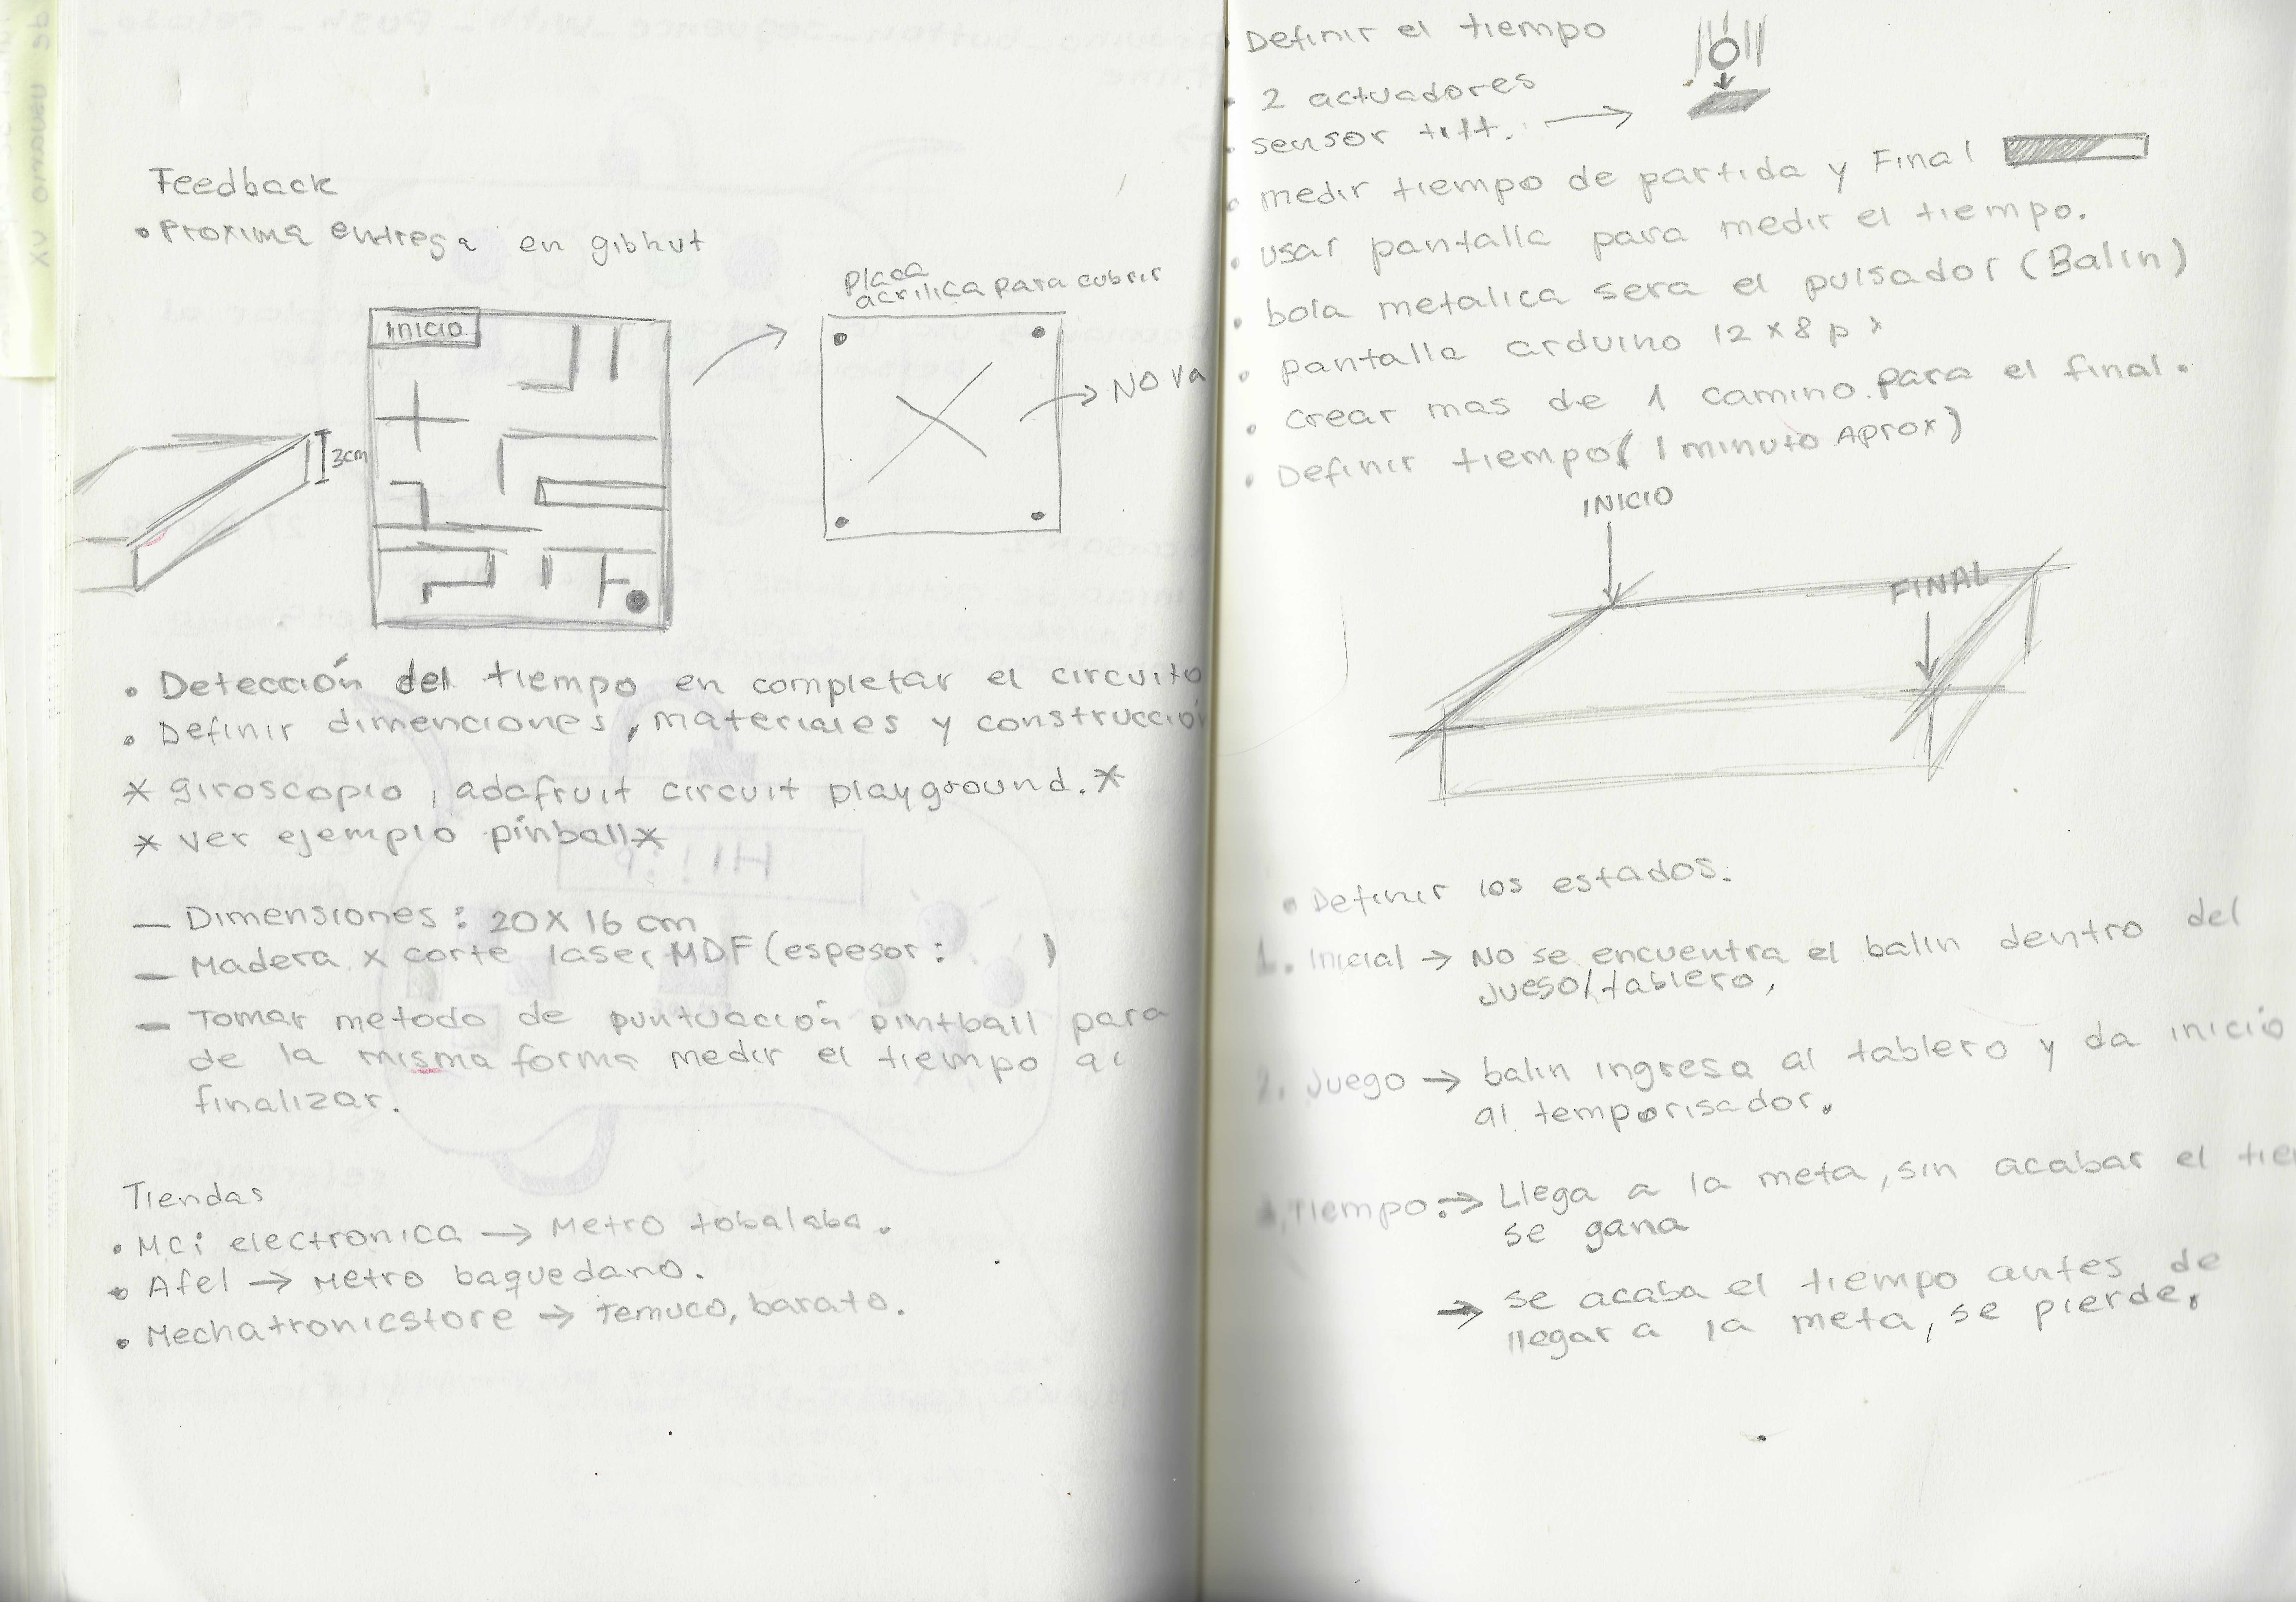 Feedback
• Proxima entrega en gibhut
Placa
acrilica para cubrir
INICIO
NO Va
3cm
• Detección del tiempo en completar el circuito
• Definir dimenciones, materiales y construcción
* giroscopio, adafruit circuit playground. *
* ver ejemplo pinball *
— Dimensiones: 20 X 16 cm
— Madera x corte laser MDF (espesor: )
— Tomar metodo de puntuación pintball para
de la misma forma medir el tiempo al
finalizar.
Tiendas
• MCi electronica → Metro tobalaba.
• Afel → Metro baquedano.
• Mechatronicstore → Temuco, barato.
Definir el tiempo
• 2 actuadores
• sensor tilt. →
• medir tiempo de partida y Final
• usar pantalla para medir el tiempo.
• bola metalica sera el pulsador (Balin)
• pantalla arduino 12 x 8 px
• crear mas de 1 camino para el final.
• Definir tiempo (1 minuto Aprox)
INICIO
FINAL
• Definir los estados.
1. Inicial → No se encuentra el balin dentro del
juego/tablero,
2. Juego → balin ingresa al tablero y da inicio
al temporisador.
Tiempo: → Llega a la meta, sin acabar el tie
se gana
→ se acaba el tiempo antes de
llegar a la meta, se pierde.